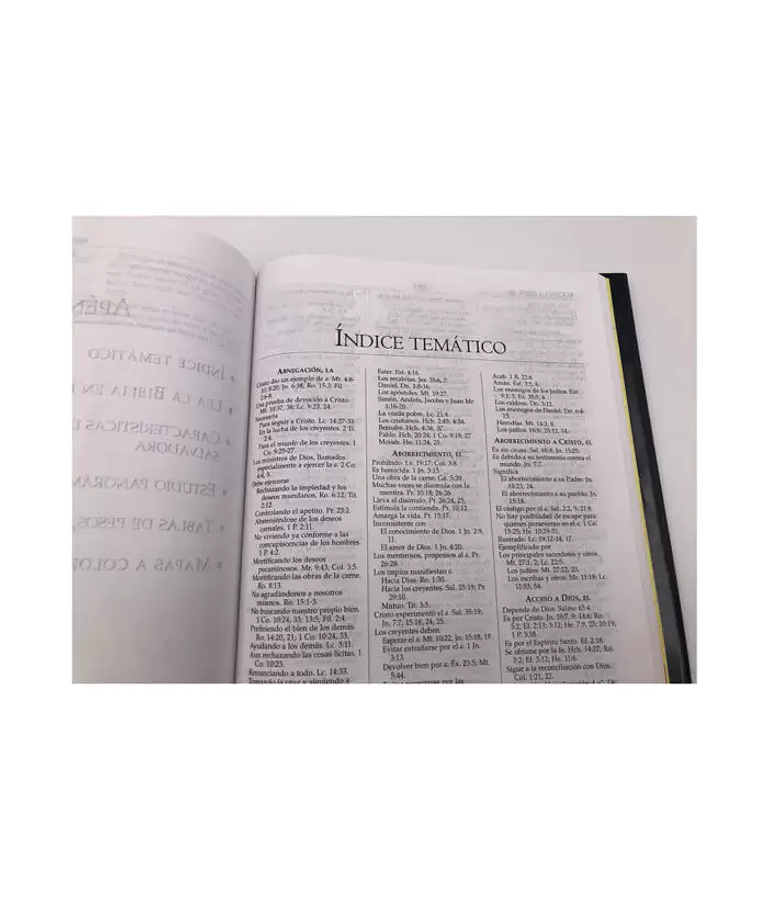 ÍNDICE TEMÁTICO
ABNEGACIÓN, LA
Cristo dio un ejemplo de a. Mt. 4:8-
10; 8:20; Jn. 6:38, Ro. 15:3; Fil.
2:6-8.
Una prueba de devoción a Cristo.
Mt. 10:37, 38; Lc. 9:23, 24.
Necesaria
Para seguir a Cristo. Lc. 14:27-33.
En la lucha de los creyentes. 2 Ti.
2:4.
Para el triunfo de los creyentes. 1
Co. 9:25-27.
Los ministros de Dios, llamados
especialmente a ejercer la a. 2 Co.
6:4, 5.
Debe ejercerse
Rechazando la impiedad y los
deseos mundanos. Ro. 6:12; Tit.
2:12.
Controlando el apetito. Pr. 23:2.
Absteniéndose de los deseos
carnales. 1 P. 2:11.
No viviendo ya conforme a las
concupiscencias de los hombres.
1 P. 4:2.
Mortificando los deseos
pecaminosos. Mr. 9:43; Col. 3:5.
Mortificando las obras de la carne.
Ro. 8:13.
No agradándonos a nosotros
mismos. Ro. 15:1-3.
No buscando nuestro propio bien.
1 Co. 10:24, 33; 13:5; Fil. 2:4.
Prefiriendo el bien de los demás.
Ro. 14:20, 21; 1 Co. 10:24, 33.
Ayudando a los demás. Lc. 3:11.
Aun rechazando las cosas lícitas. 1
Co. 10:23.
Renunciando a todo. Lc. 14:33.
Tomando la cruz y siguiendo a
Ester. Est. 4:16.
Los recabitas. Jer. 35:6, 7.
Daniel. Dn. 1:8-16.
Los apóstoles. Mt. 19:27.
Simón, Andrés, Jacobo y Juan Mr.
1:16-20.
La viuda pobre. Lc. 21:4.
Los cristianos. Hch. 2:45; 4:34.
Bernabé. Hch. 4:36, 37.
Pablo. Hch. 20:24; 1 Co. 9:19, 27.
Moisés. He. 11:24, 25.
ABORRECIMIENTO, EL
Prohibido. Lv. 19:17; Col. 3:8.
Es homicida. 1 Jn. 3:15.
Una obra de la carne. Gá. 5:20.
Muchas veces se disimula con la
mentira. Pr. 10:18; 26:26.
Lleva al disimulo. Pr. 26:24, 25.
Estimula la contienda. Pr. 10:12.
Amarga la vida. Pr. 15:17.
Inconsistente con
El conocimiento de Dios. 1 Jn. 2:9,
11.
El amor de Dios. 1 Jn. 4:20.
Los mentirosos, propensos al a. Pr.
26:28.
Los impíos manifiestan a.
Hacia Dios. Ro. 1:30.
Hacia los creyentes. Sal. 25:19; Pr.
29:10.
Mutuo. Tit. 3:3.
Cristo experimentó el a. Sal. 35:19;
Jn. 7:7; 15:18, 24, 25.
Los creyentes deben
Esperar el a. Mt. 10:22; Jn. 15:18, 19.
Evitar extrañarse por el a. 1 Jn.
3:13.
Devolver bien por a. Éx. 23:5; Mt.
5:44.
Acab. 1 R. 22:8.
Amán. Est. 3:5, 6.
Los enemigos de los judíos. Est.
9:1, 5; Ez. 35:5, 6.
Los caldeos. Dn. 3:12.
Los enemigos de Daniel. Dn. 6:4-
15.
Herodías. Mt. 14:3, 8.
Los judíos. Hch. 23:12, 14.
ABORRECIMIENTO A CRISTO, EL
Es sin causa. Sal. 69:4; Jn. 15:25.
Es debido a su testimonio contra el
mundo. Jn. 7:7.
Significa
El aborrecimiento a su Padre. Jn.
15:23, 24.
El aborrecimiento a su pueblo. Jn.
15:18.
El castigo por el a. Sal. 2:2, 9; 21:8.
No hay posibilidad de escape para
quienes perseveran en el a. 1 Co.
15:25; He. 10:29-31.
Ilustrado. Lc. 19:12-14, 17.
Ejemplificado por
Los principales sacerdotes y otros.
Mt. 27:1, 2; Lc. 22:5.
Los judíos. Mt. 27:22, 23.
Los escribas y otros. Mr. 11:18; Lc.
11:53, 54.
ACCESO A DIOS, EL
Depende de Dios. Salmo 65:4.
Es por Cristo. Jn. 10:7, 9; 14:6; Ro.
5:2; Ef. 2:13; 3:12; He. 7:9, 25; 10:19;
1 P. 3:18.
Es por el Espíritu Santo. Ef. 2:18.
Se obtiene por la fe. Hch. 14:27; Ro.
5:2; Ef. 3:12; He. 11:6.
Sigue a la reconciliación con Dios.
Col. 1:21, 22.